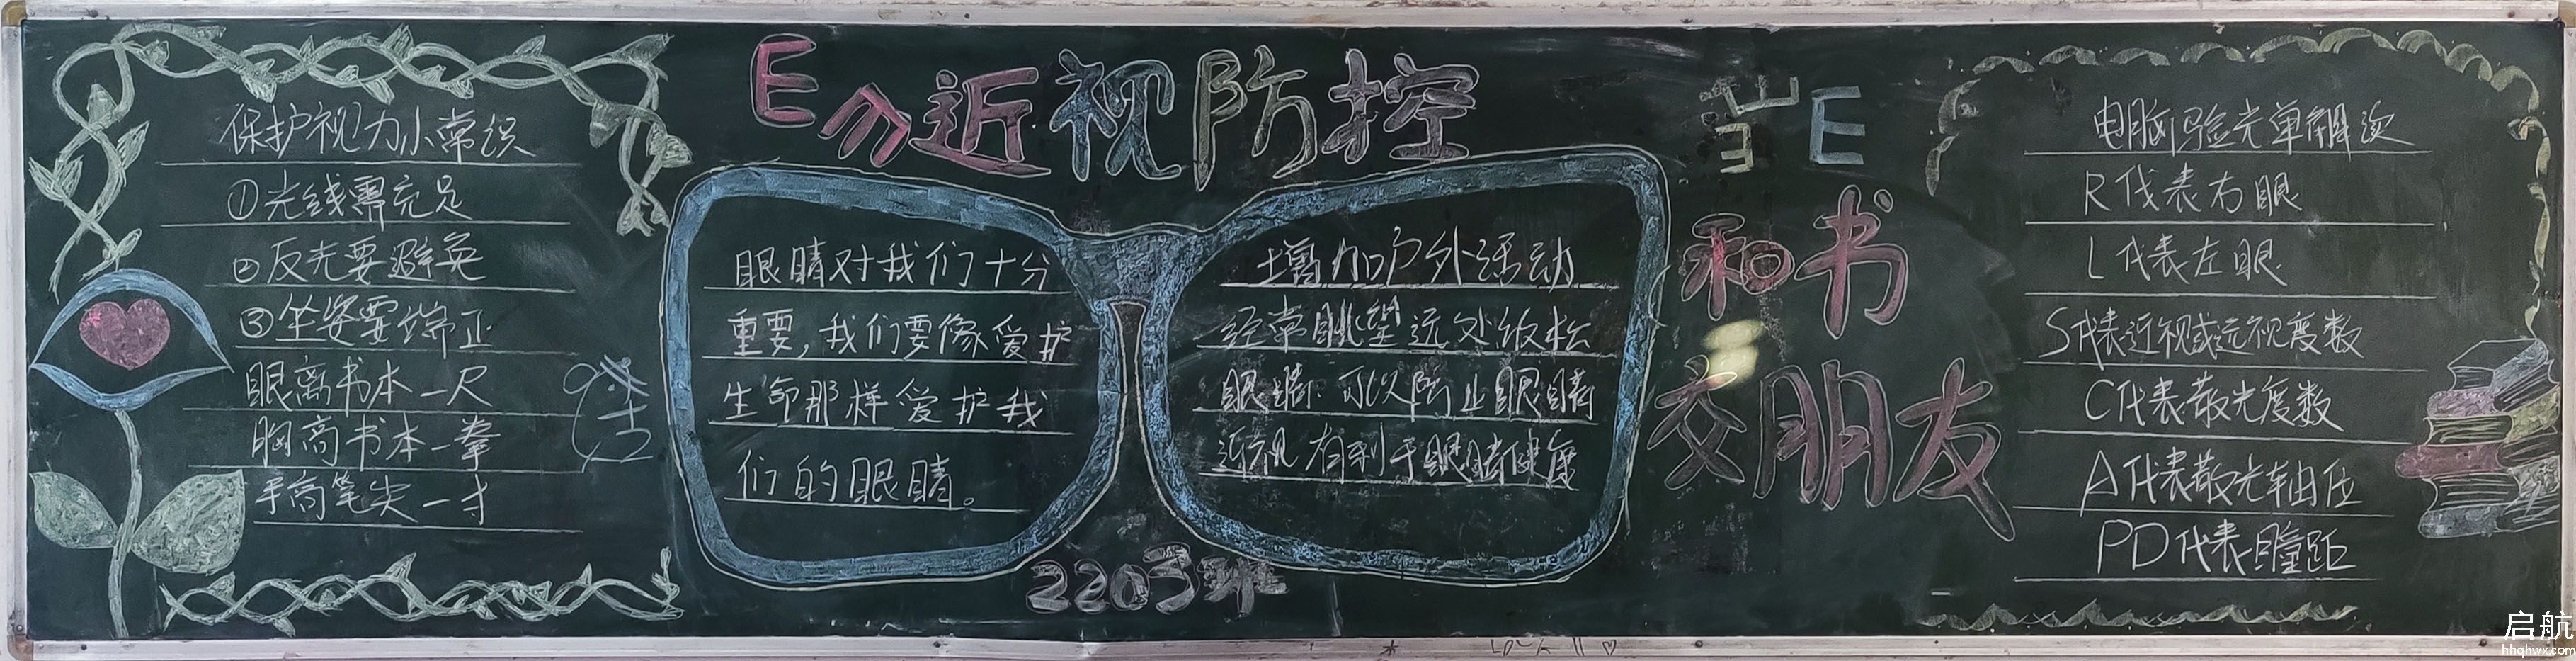 近视防控
保护视力小常识
①光线需充足
②反光要避免
③坐姿要端正
眼离书本一尺
胸离书本一拳
手离笔尖一寸
眼睛对我们十分
重要，我们要像爱护
生命那样爱护我
们的眼睛。
增加户外活动
经常眺望远处放松
眼睛.可以防止眼睛
近视有利于眼睛健康
2203班
E
E
和书
交朋友
电脑验光单解读
R代表右眼
L代表左眼
S代表近视或远视度数
C代表散光度数
A代表散光轴位
PD代表瞳距
启航
hhqhwx.com